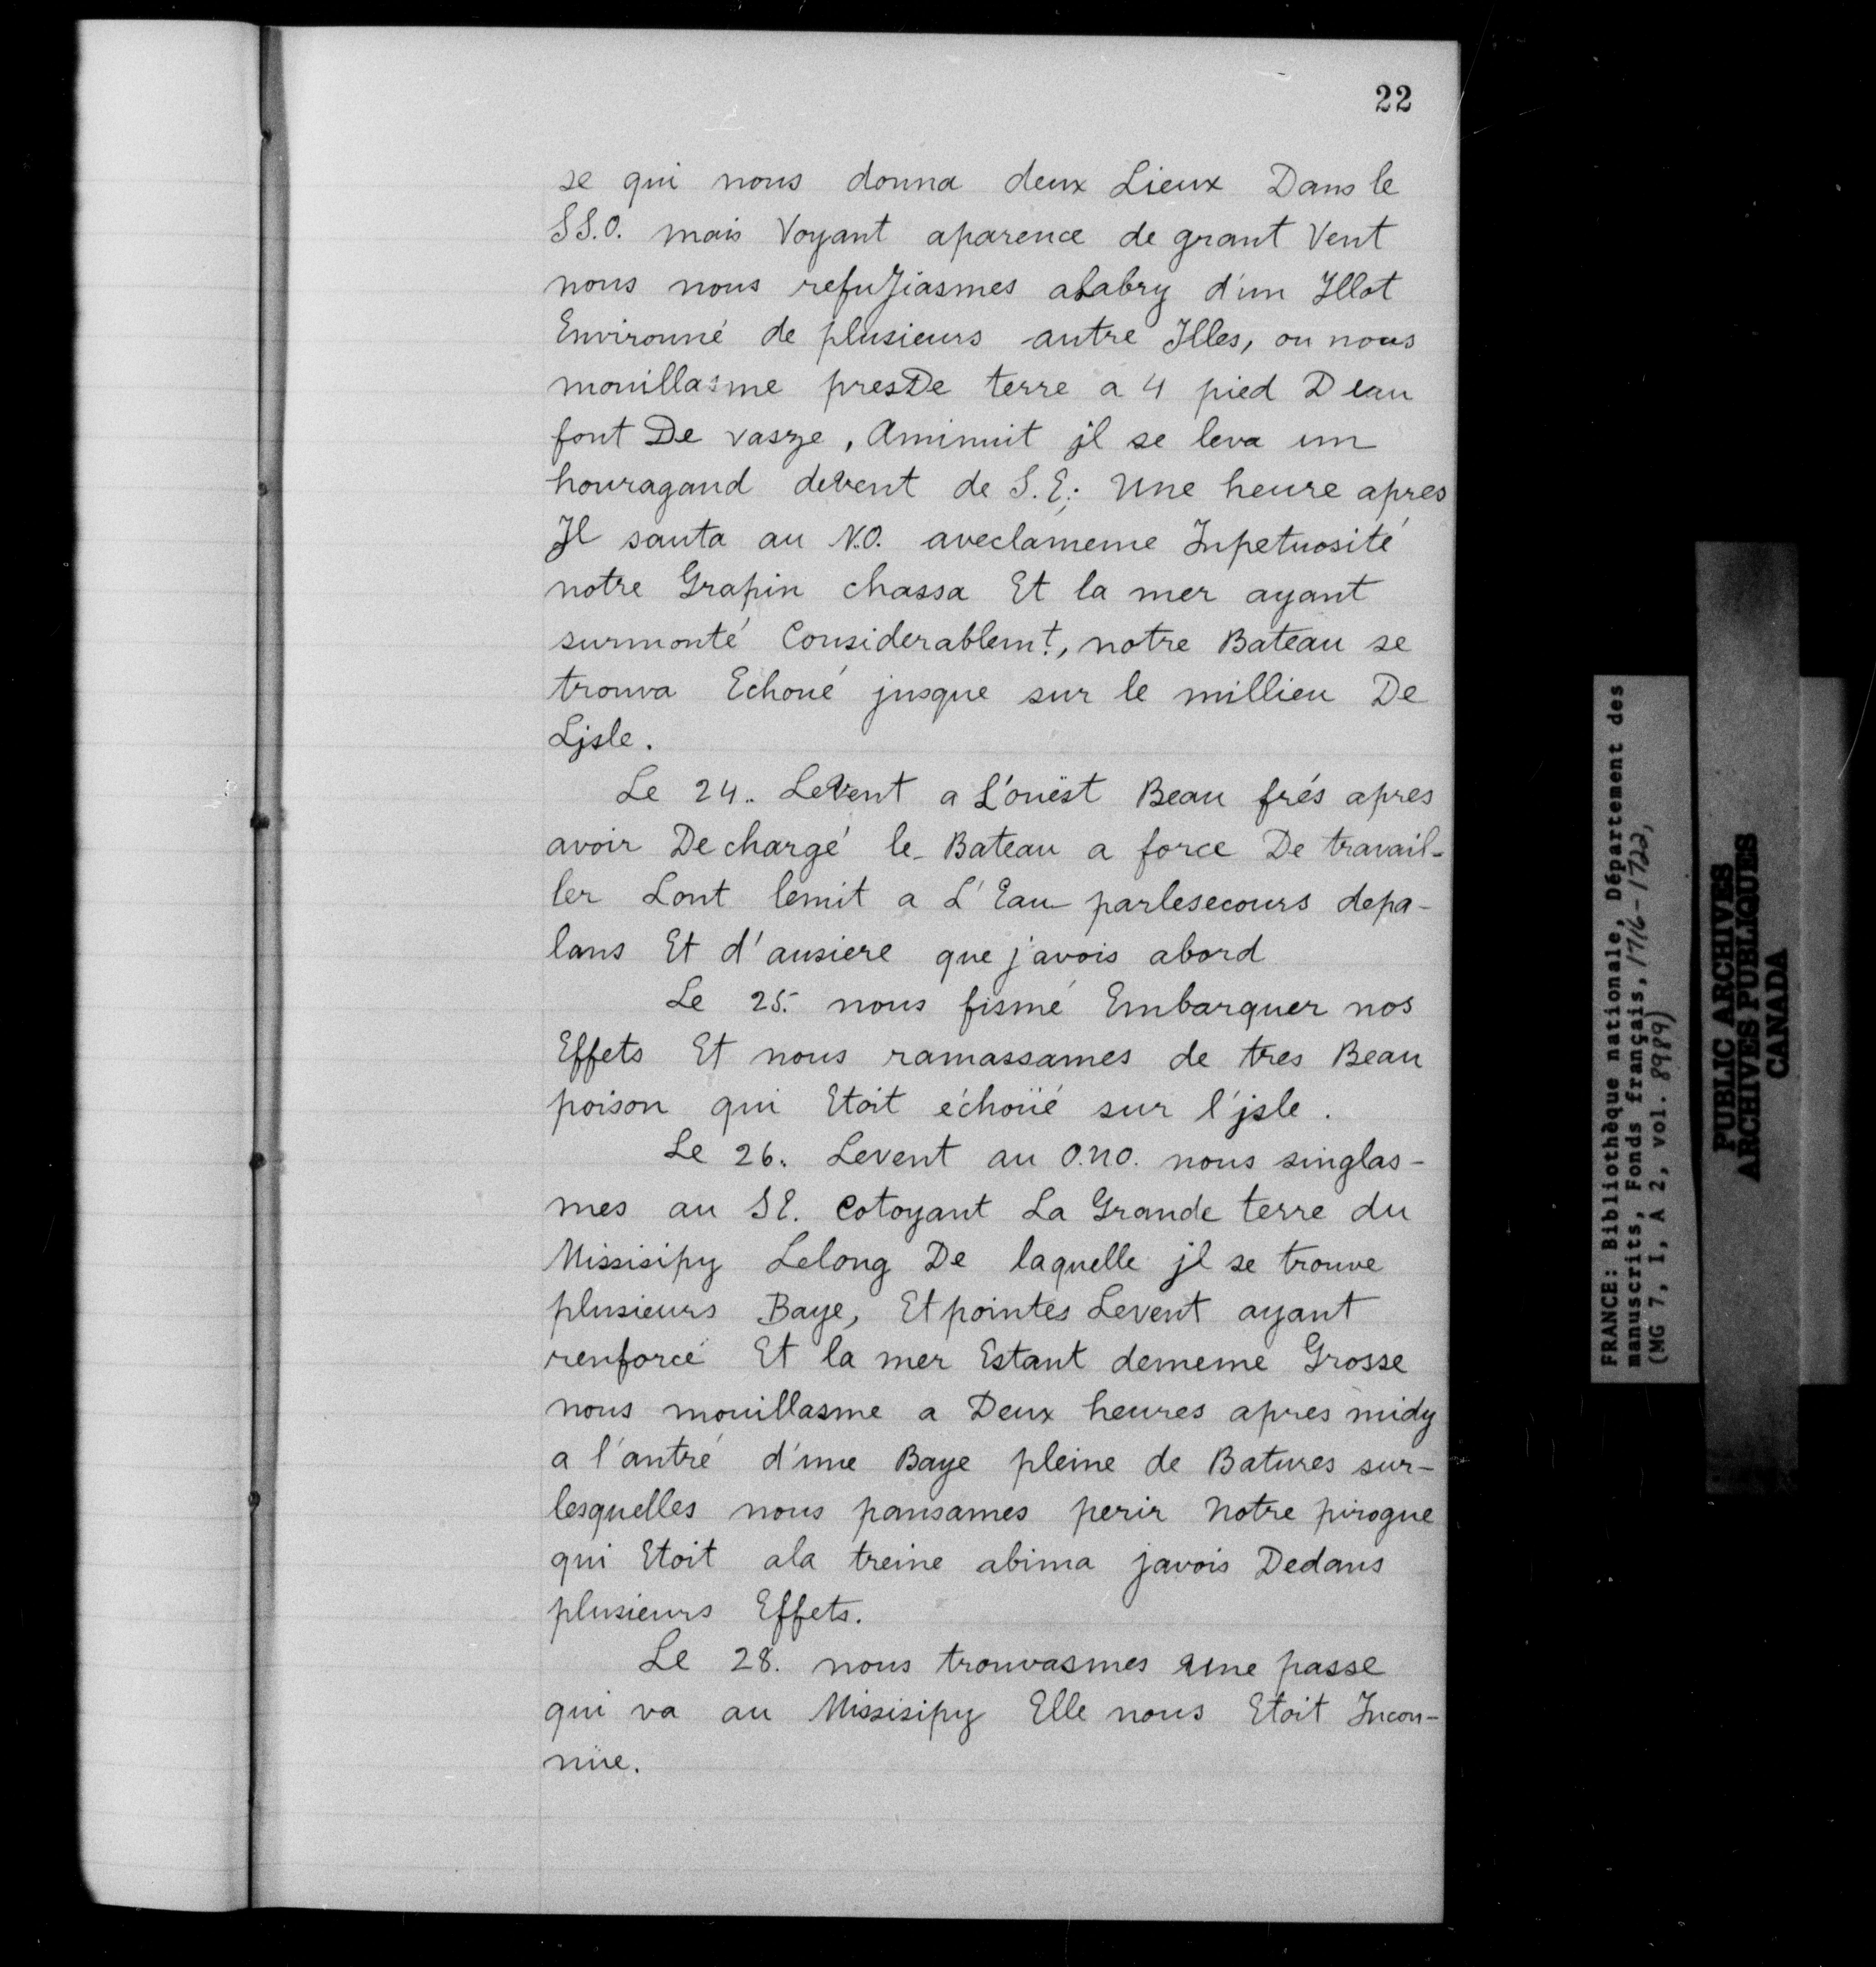 22
se qui nous donna deux Lieux Dans le
SS.O. mais Voyant aparence de grant Vent
nous nous refuJiasmes alabry d'un Jllot
Environné de plusieurs autre Jlles, ou nous
mouillasme presDe terre a 4 pied D eau
font De vasze, Aminuit jl se leva un
houragand devent de S.E; Une heure apres
Jl sauta au N.O. aveclameme Inpetuosité
notre Grapin chassa Et la mer ayant
surmonté Considerablemt., notre Bateau se
trouva Echoué jusque sur le millieu De
Ljsle.
Le 24.. LeVent a L'ouëst Beau frés apres
avoir Dechargé le Bateau a force De travail-
ler Lont lemit a L'Eau parlesecours depa-
lans Et d'ausiere que j'avois abord
Le 25. nous fismé Embarquer nos
Effets Et nous ramassames de tres Beau
poison qui Etoit échoüé sur l'jsle.
Le 26. Levent au O.NO. nous singlas-
mes au SE. Cotoyant La Grande terre du
Missisipy Lelong De laquelle jl se trouve
plusieurs Baye, Et pointes Levent ayant
renforcé Et la mer Estant dememe Grosse
nous mouillasme a Deux heures apres midy
a l'antré d'une Baye pleine de Batures sur-
lesquelles nous pansames perir Notre pirogue
qui Etoit ala treine abima javois Dedans
plusieurs Effets.
Le 28. nous trouvasmes une passe
qui va au Missisipy Elle nous Etoit Incon-
nüe.
FRANCE: Bibliothèque nationale, Département des
manuscrits, Fonds français, 1716-1722,
(MG 7, I, A 2, vol. 8989)
PUBLIC ARCHIVES
ARCHIVES PUBLIQUES
CANADA